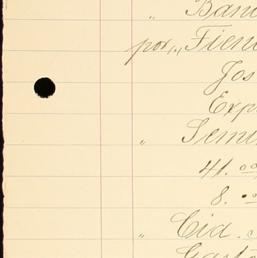 " Ban
por " Fien
Jos
Exp
" Semi
41.
8.
" Cia.
Gast